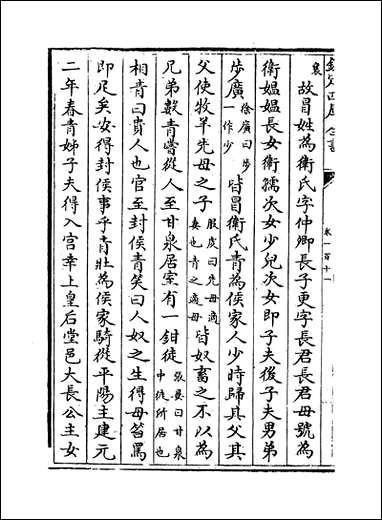 欽定四庫全書
卷一百十一
襄
故冒姓為衛氏字仲卿長子更字長君長君母號為
衛媼媼長女衛孺次女少兒次女即子夫後子夫男弟
步廣徐廣曰步一作少皆冒衛氏青為侯家人少時歸其父其
父使牧羊先母之子服虔曰先母適妻也青之適母皆奴畜之不以為
兄弟數青嘗從人至甘泉居室有一鉗徒張晏曰甘泉中徒所居也
相青曰貴人也官至封侯青笑曰人奴之生得毋笞罵
即足矣安得封侯事乎青壯為侯家騎從平陽主建元
二年春青姊子夫得入宮幸上皇后堂邑大長公主女